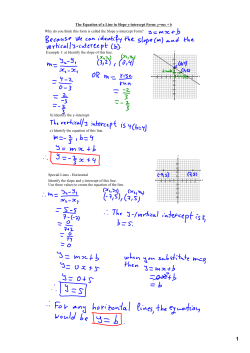 The Equation of a Line in Slope y-intercept Form: y=mx + b
Why do you think this form is called the Slope y-intercept Form? y = mx+b
Because we can identify the slope(m) and the
vertical/y-intercept (b).
Example 1 a) Identify the slope of this line.
(x₁,y₁) (x₂,y₂)
(3,2), (0,4)
m = y₂-y₁
x₂-x₁
OR m = rise
run
= 4-2
0-3
= -2
3
= 2
-3
= -2
3
b) Identify the y-intercept
The vertical/y intercept is 4 (b=4)
c) Identify the equation of this line.
m = -2/3, b = 4
y = mx + b
y = -2/3 x + 4
Special Lines - Horizontal
Identify the slope and y-intercept of this line.
Use these values to create the equation of the line.
(x₁,y₁) (x₂,y₂)
(-7,5), (7,5)
m = y₂-y₁
x₂-x₁
= 5-5
7-(-7)
∴ The y-/vertical intercept is 5,
b=5.
= 0
7+7
= 0
= 0
y = mx + b
y = 0x + 5
y = 0 + 5
y = 5
when you substitute m=0,
then y = mx+b
= 0x+b
= b
∴ For any horizontal lines, the equation
would be y = b.
1